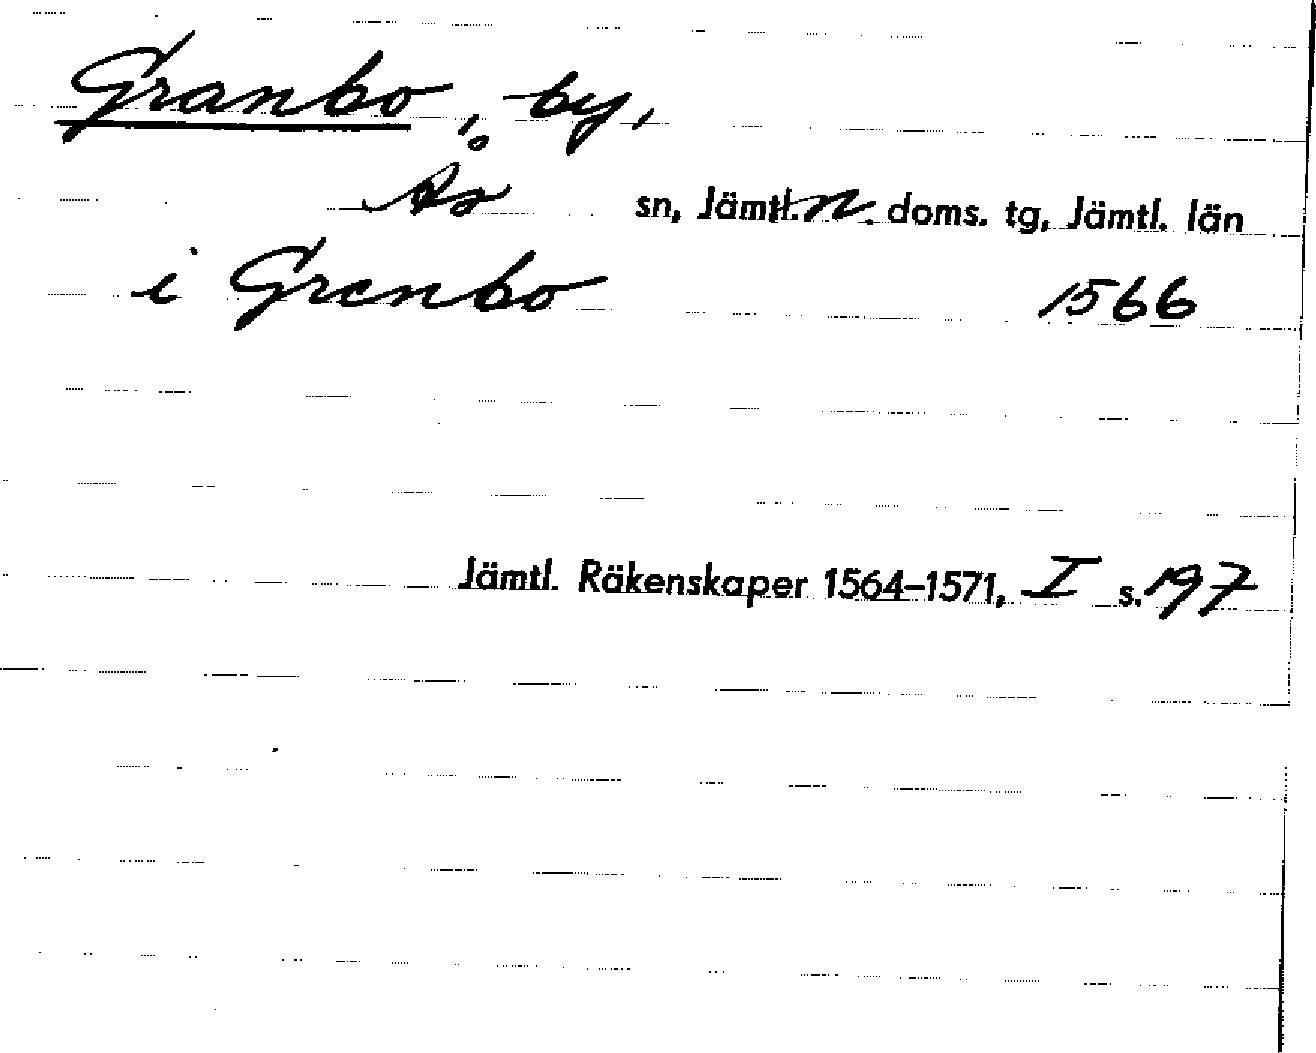 Granbo, by,
Ås sn, Jämtl. n. doms. tg, Jämtl. län
i Grenbo 1566
Jämtl. Räkenskaper 1564–1571, I s. 197